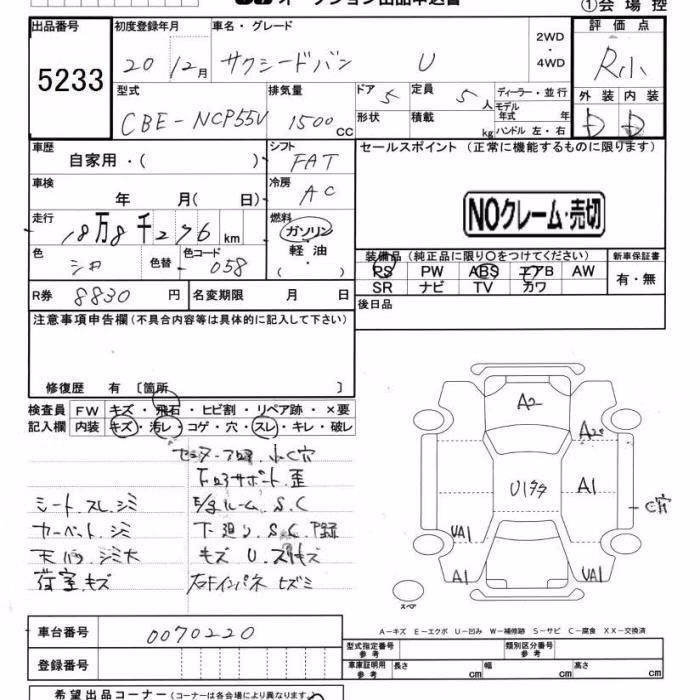 オークション出品申込書
①会場控
出品番号 初度登録年月 車名・グレード 2WD・4WD 評価点
5233 20 / 12月 サクシードバン U R小
型式 排気量 ドア 定員 ディーラー・並行 外装 内装
CBE-NCP55V 1500cc 5 5人 モデル年式 年 D D
形状 積載 kg ハンドル 左・右
車歴 シフト セールスポイント (正常に機能するものに限ります)
自家用・( ) FAT
車検 冷房
年 月( 日) AC
NOクレーム・売切
走行 燃料
18万8千276km ガソリン
軽・油
( )
色 色替 色コード 装備品 (純正品に限り○をつけてください) 新車保証書
シロ 058 PS PW ABS エアB AW 有・無
SR ナビ TV カワ
R券 8830円 名変期限 月 日 後日品
注意事項申告欄(不具合内容等は具体的に記入して下さい)
修復歴 有 〔箇所 〕
検査員 FW キズ・飛石・ヒビ割・リペア跡・×要
記入欄 内装 キズ・汚レ・コゲ・穴・スレ・キレ・破レ
センターフロア
下回サポート 歪
シート スレ シミ ルーム S.C
カーペット シミ 下廻り S.C
天バリ シミ大 キズ U. スリキズ
荷室 キズ 右Fインパネ ヒズミ
A2
A2
U1タタ
A1
C穴
UA1
A1
UA1
スペア
車台番号 0070220
登録番号
A-キズ E-エクボ U-凹み W-補修跡 S-サビ C-腐食 XX-交換済
型式指定番号 参考 類別区分番号 参考
車庫証明用 参考 長さ cm 幅 cm 高さ cm
希望出品コーナー(コーナーは各会場により異なります